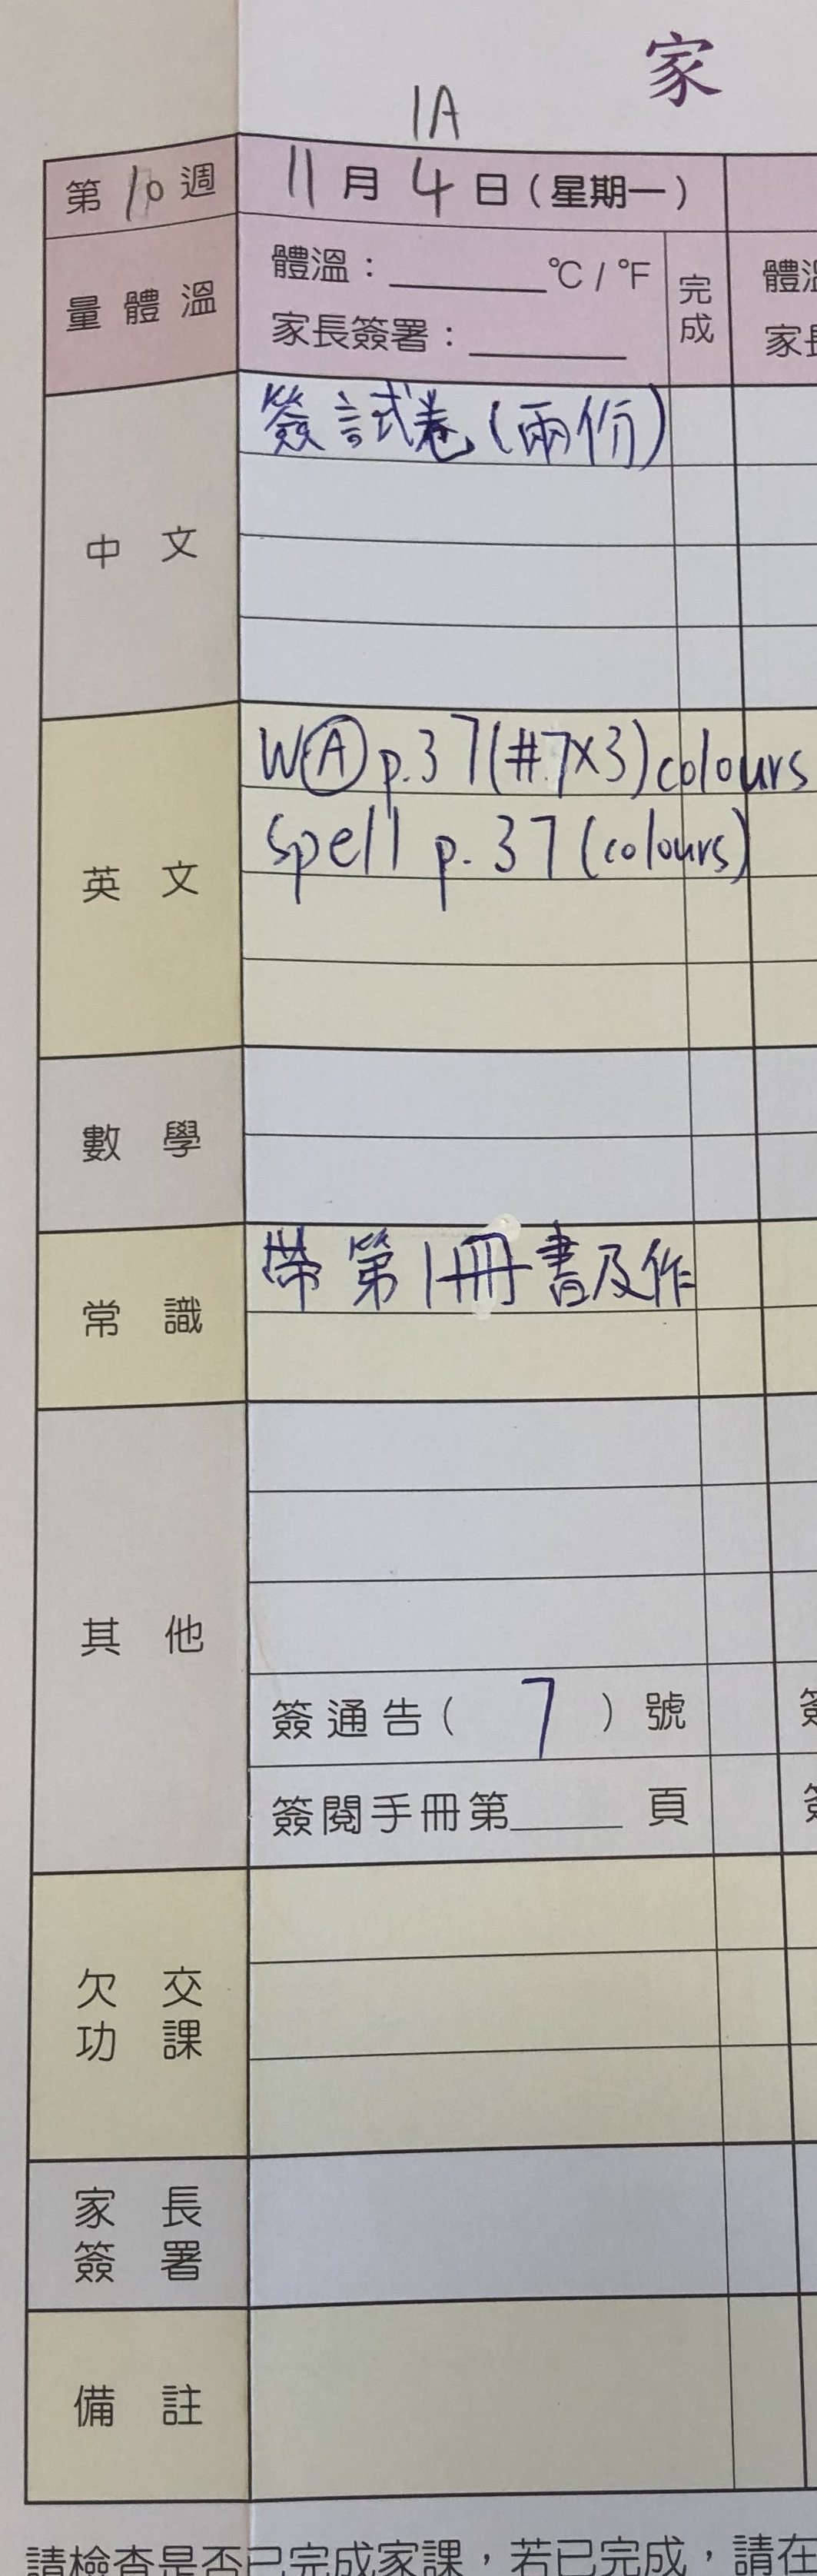 家
1A
第10週
11月4日(星期一)
量體溫
體溫：______°C / °F
家長簽署：______
完成
體溫
家長
中文
簽試卷(兩份)
英文
W Ⓐ p.37(#7x3)colours
Spell p.37(colours)
數學
常識
帶第1冊書及作
其他
簽通告( 7 )號
簽閱手冊第____頁
欠交功課
家長簽署
備註
請檢查是否已完成家課，若已完成，請在